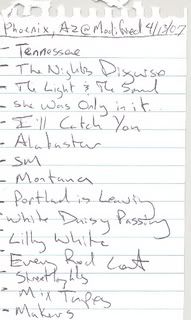 Phoenix, Az @ Modified 4/13/07
- Tennessee
- The Nights Disguise
- The Light & The Sound
- she was Only in it..
- I'll Catch You
- Alabaster
- SM
- Montana
- Portland is Leaving
- White Daisy Passing
- Lilly White
- Every Red Cent
- Streetlights
- Mix Tapes
- Makers